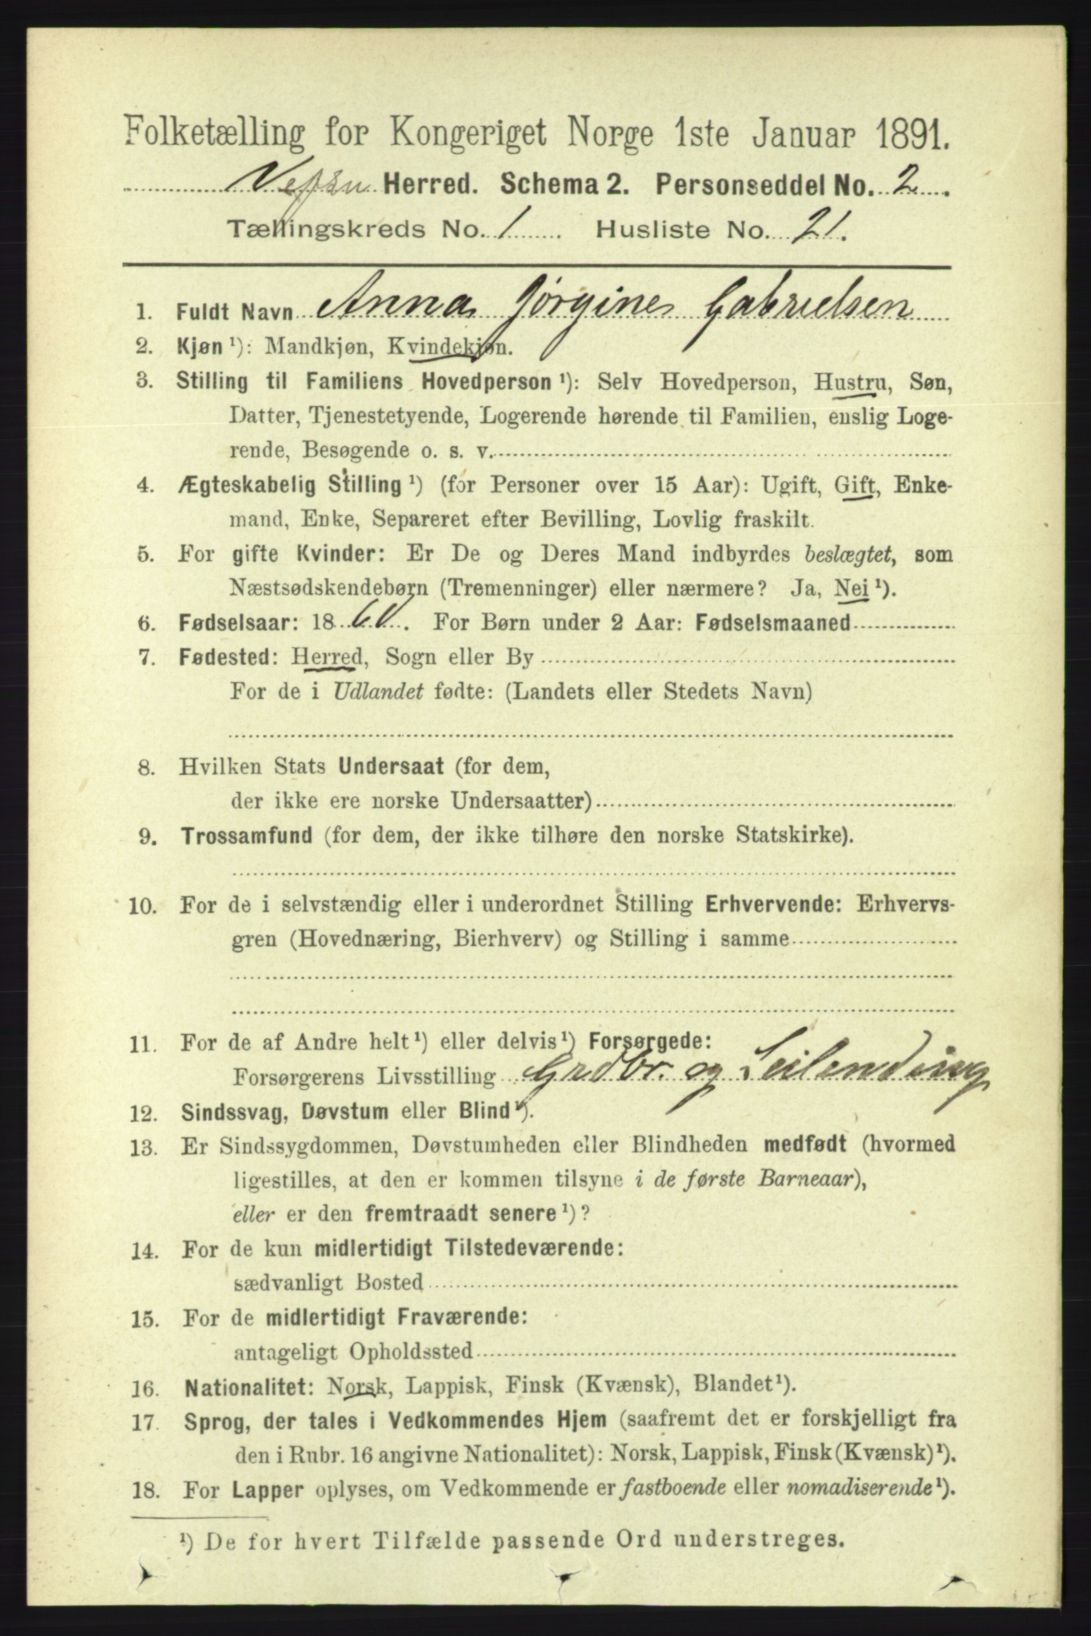 Folketælling for Kongeriget Norge 1ste Januar 1891.
Vefsn Herred. Schema 2. Personseddel No. 2.
Tællingskreds No. 1. Husliste No. 21.
1. Fuldt Navn Anna Jørgine Gabrielsen
2. Kjøn ¹): Mandkjøn, Kvindekjøn.
3. Stilling til Familiens Hovedperson ¹): Selv Hovedperson, Hustru, Søn,
Datter, Tjenestetyende, Logerende hørende til Familien, enslig Loge-
rende, Besøgende o. s. v.
4. Ægteskabelig Stilling ¹) (for Personer over 15 Aar): Ugift, Gift, Enke-
mand, Enke, Separeret efter Bevilling, Lovlig fraskilt.
5. For gifte Kvinder: Er De og Deres Mand indbyrdes beslægtet, som
Næstsødskendebørn (Tremenninger) eller nærmere? Ja, Nei ¹).
6. Fødselsaar: 1860. For Børn under 2 Aar: Fødselsmaaned
7. Fødested: Herred, Sogn eller By
For de i Udlandet fødte: (Landets eller Stedets Navn)
8. Hvilken Stats Undersaat (for dem,
der ikke ere norske Undersaatter)
9. Trossamfund (for dem, der ikke tilhøre den norske Statskirke).
10. For de i selvstændig eller i underordnet Stilling Erhvervende: Erhvervs-
gren (Hovednæring, Bierhverv) og Stilling i samme
11. For de af Andre helt ¹) eller delvis ¹) Forsørgede:
Forsørgerens Livsstilling Grdbr. og Leilending
12. Sindssvag, Døvstum eller Blind ¹).
13. Er Sindssygdommen, Døvstumheden eller Blindheden medfødt (hvormed
ligestilles, at den er kommen tilsyne i de første Barneaar),
eller er den fremtraadt senere ¹)?
14. For de kun midlertidigt Tilstedeværende:
sædvanligt Bosted
15. For de midlertidigt Fraværende:
antageligt Opholdssted
16. Nationalitet: Norsk, Lappisk, Finsk (Kvænsk), Blandet ¹).
17. Sprog, der tales i Vedkommendes Hjem (saafremt det er forskjelligt fra
den i Rubr. 16 angivne Nationalitet): Norsk, Lappisk, Finsk (Kvænsk) ¹).
18. For Lapper oplyses, om Vedkommende er fastboende eller nomadiserende ¹).
¹) De for hvert Tilfælde passende Ord understreges.